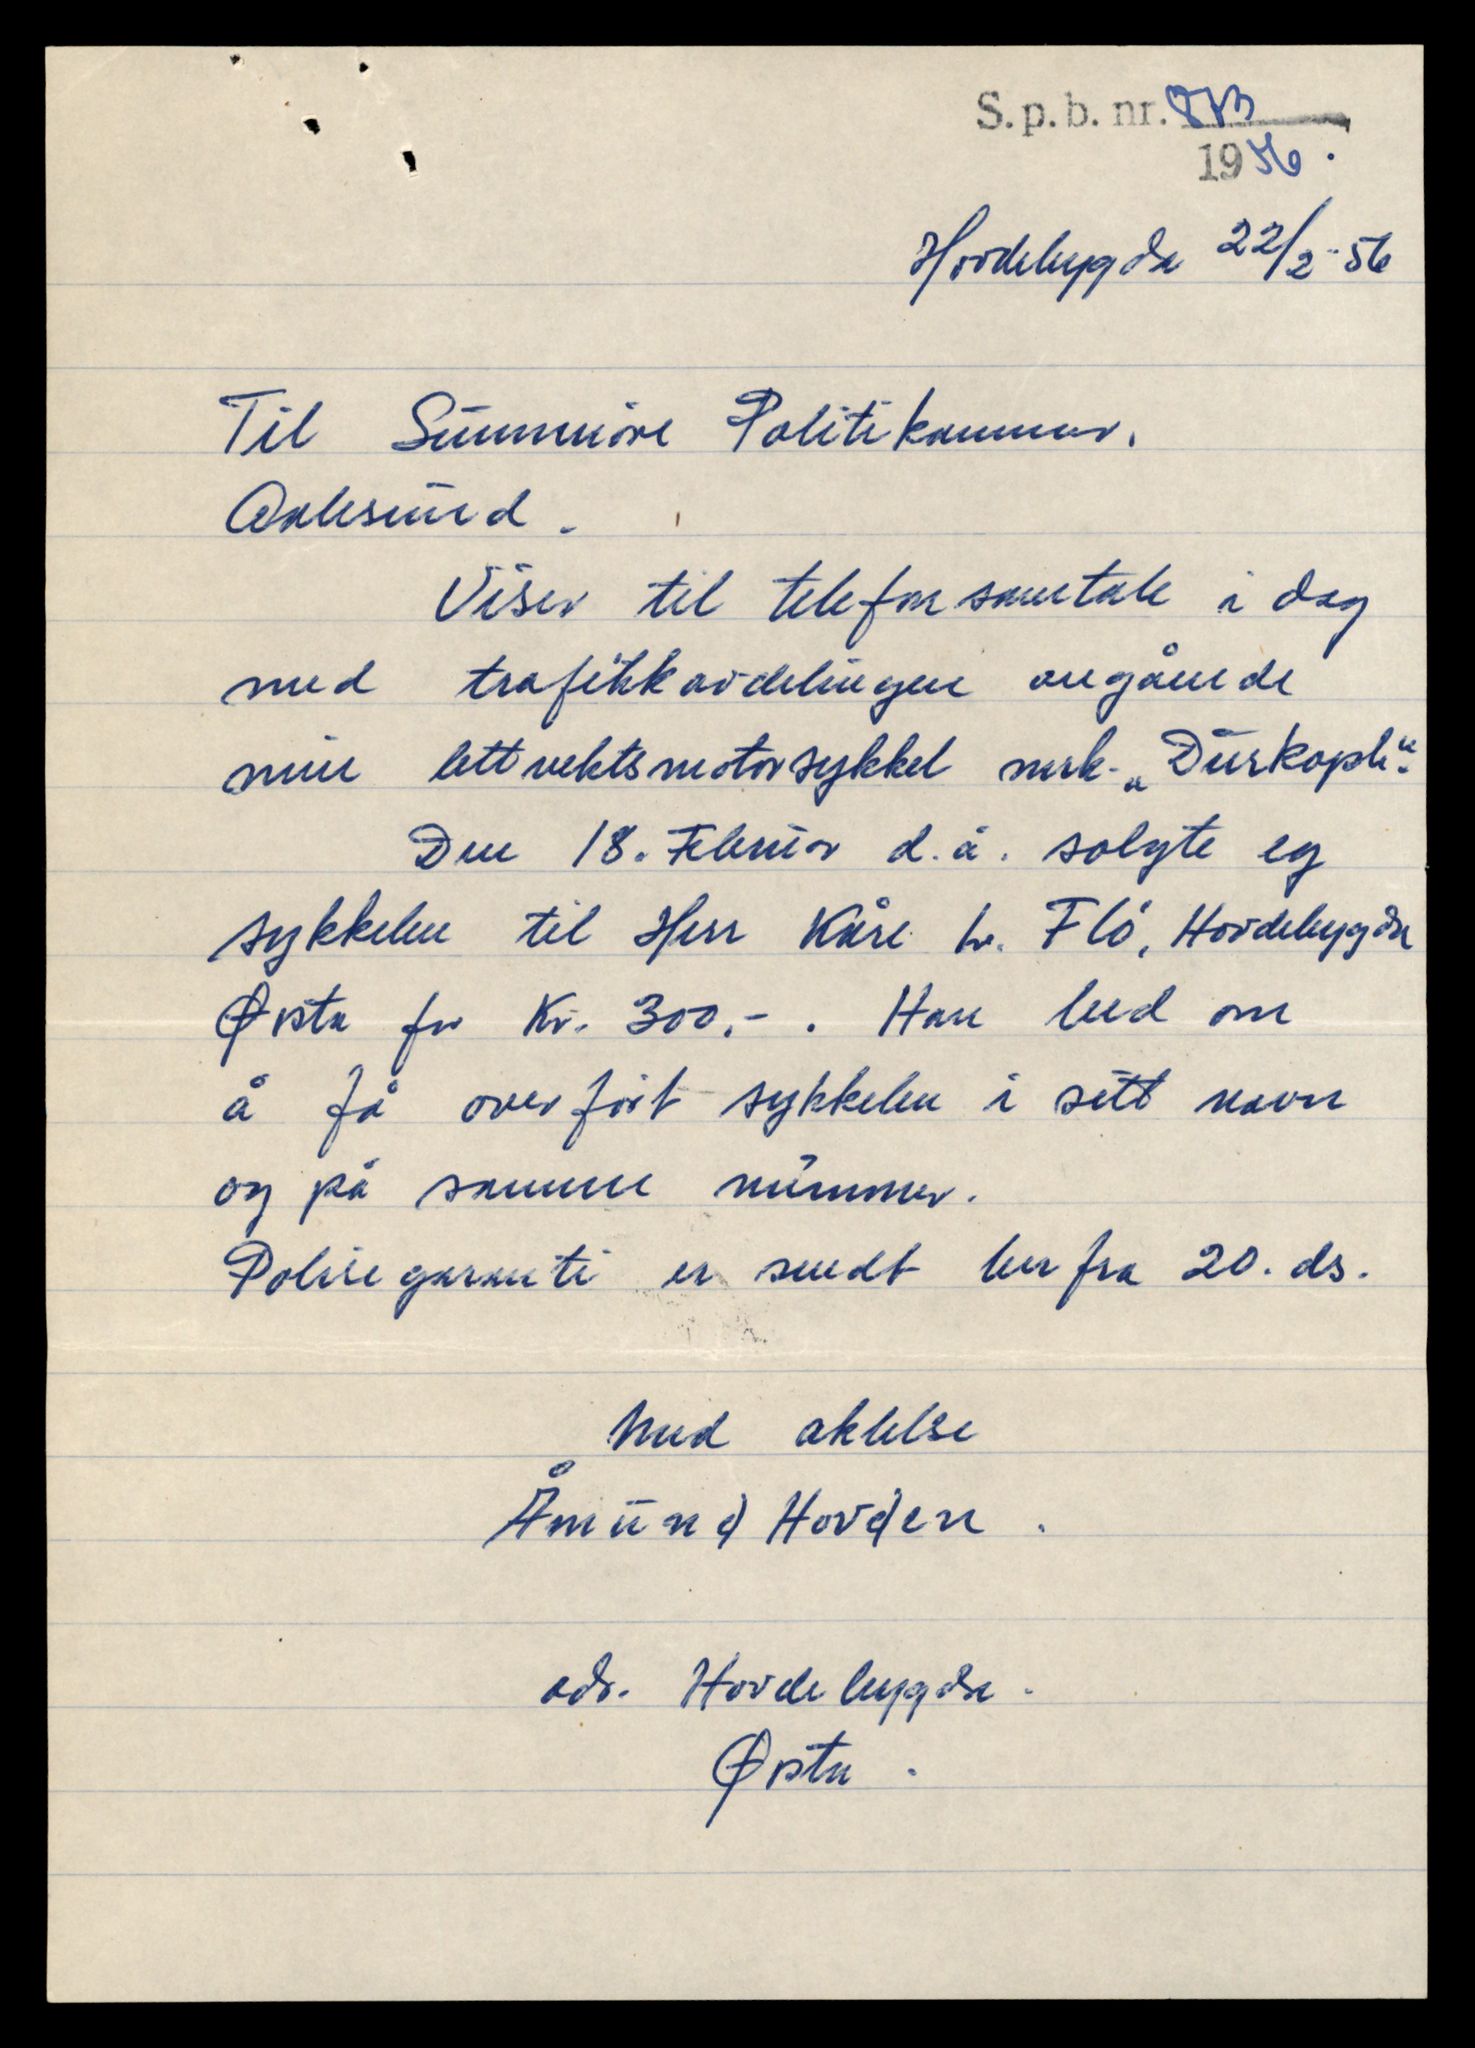 S.p.b. nr.
1956.
Hovdebygda 22/2-56
Til Sunnmöre Politikammer.
Aalesund.
Viser til telefonsamtale i dag
med trafikkavdelingen angående
min lettvektsmotorsykkel merk. „Dürkoph“.
Den 18. Februar d.å. solgte eg
sykkelen til Herr Kåre Flö, Hovdebygda
Ørsta for Kr. 300,-. Han bed om
å få overfört sykkelen i sitt navn
og på samme nummer.
Polisegaranti er sendt herfra 20. ds.
Med aktelse
Åmund Hovden.
adr. Hovdebygda.
Ørsta.